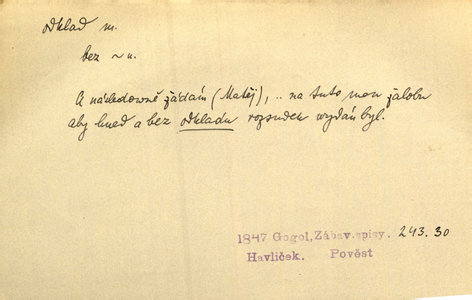 odklad m.
bez ~u.
A následowně žádám (Matěj), .. na tuto mou žalobu
aby hned a bez odkladu rozsudek wydán byl.
1847 Gogol, Zábav.spisy. 243.30
Havlíček. Pověst